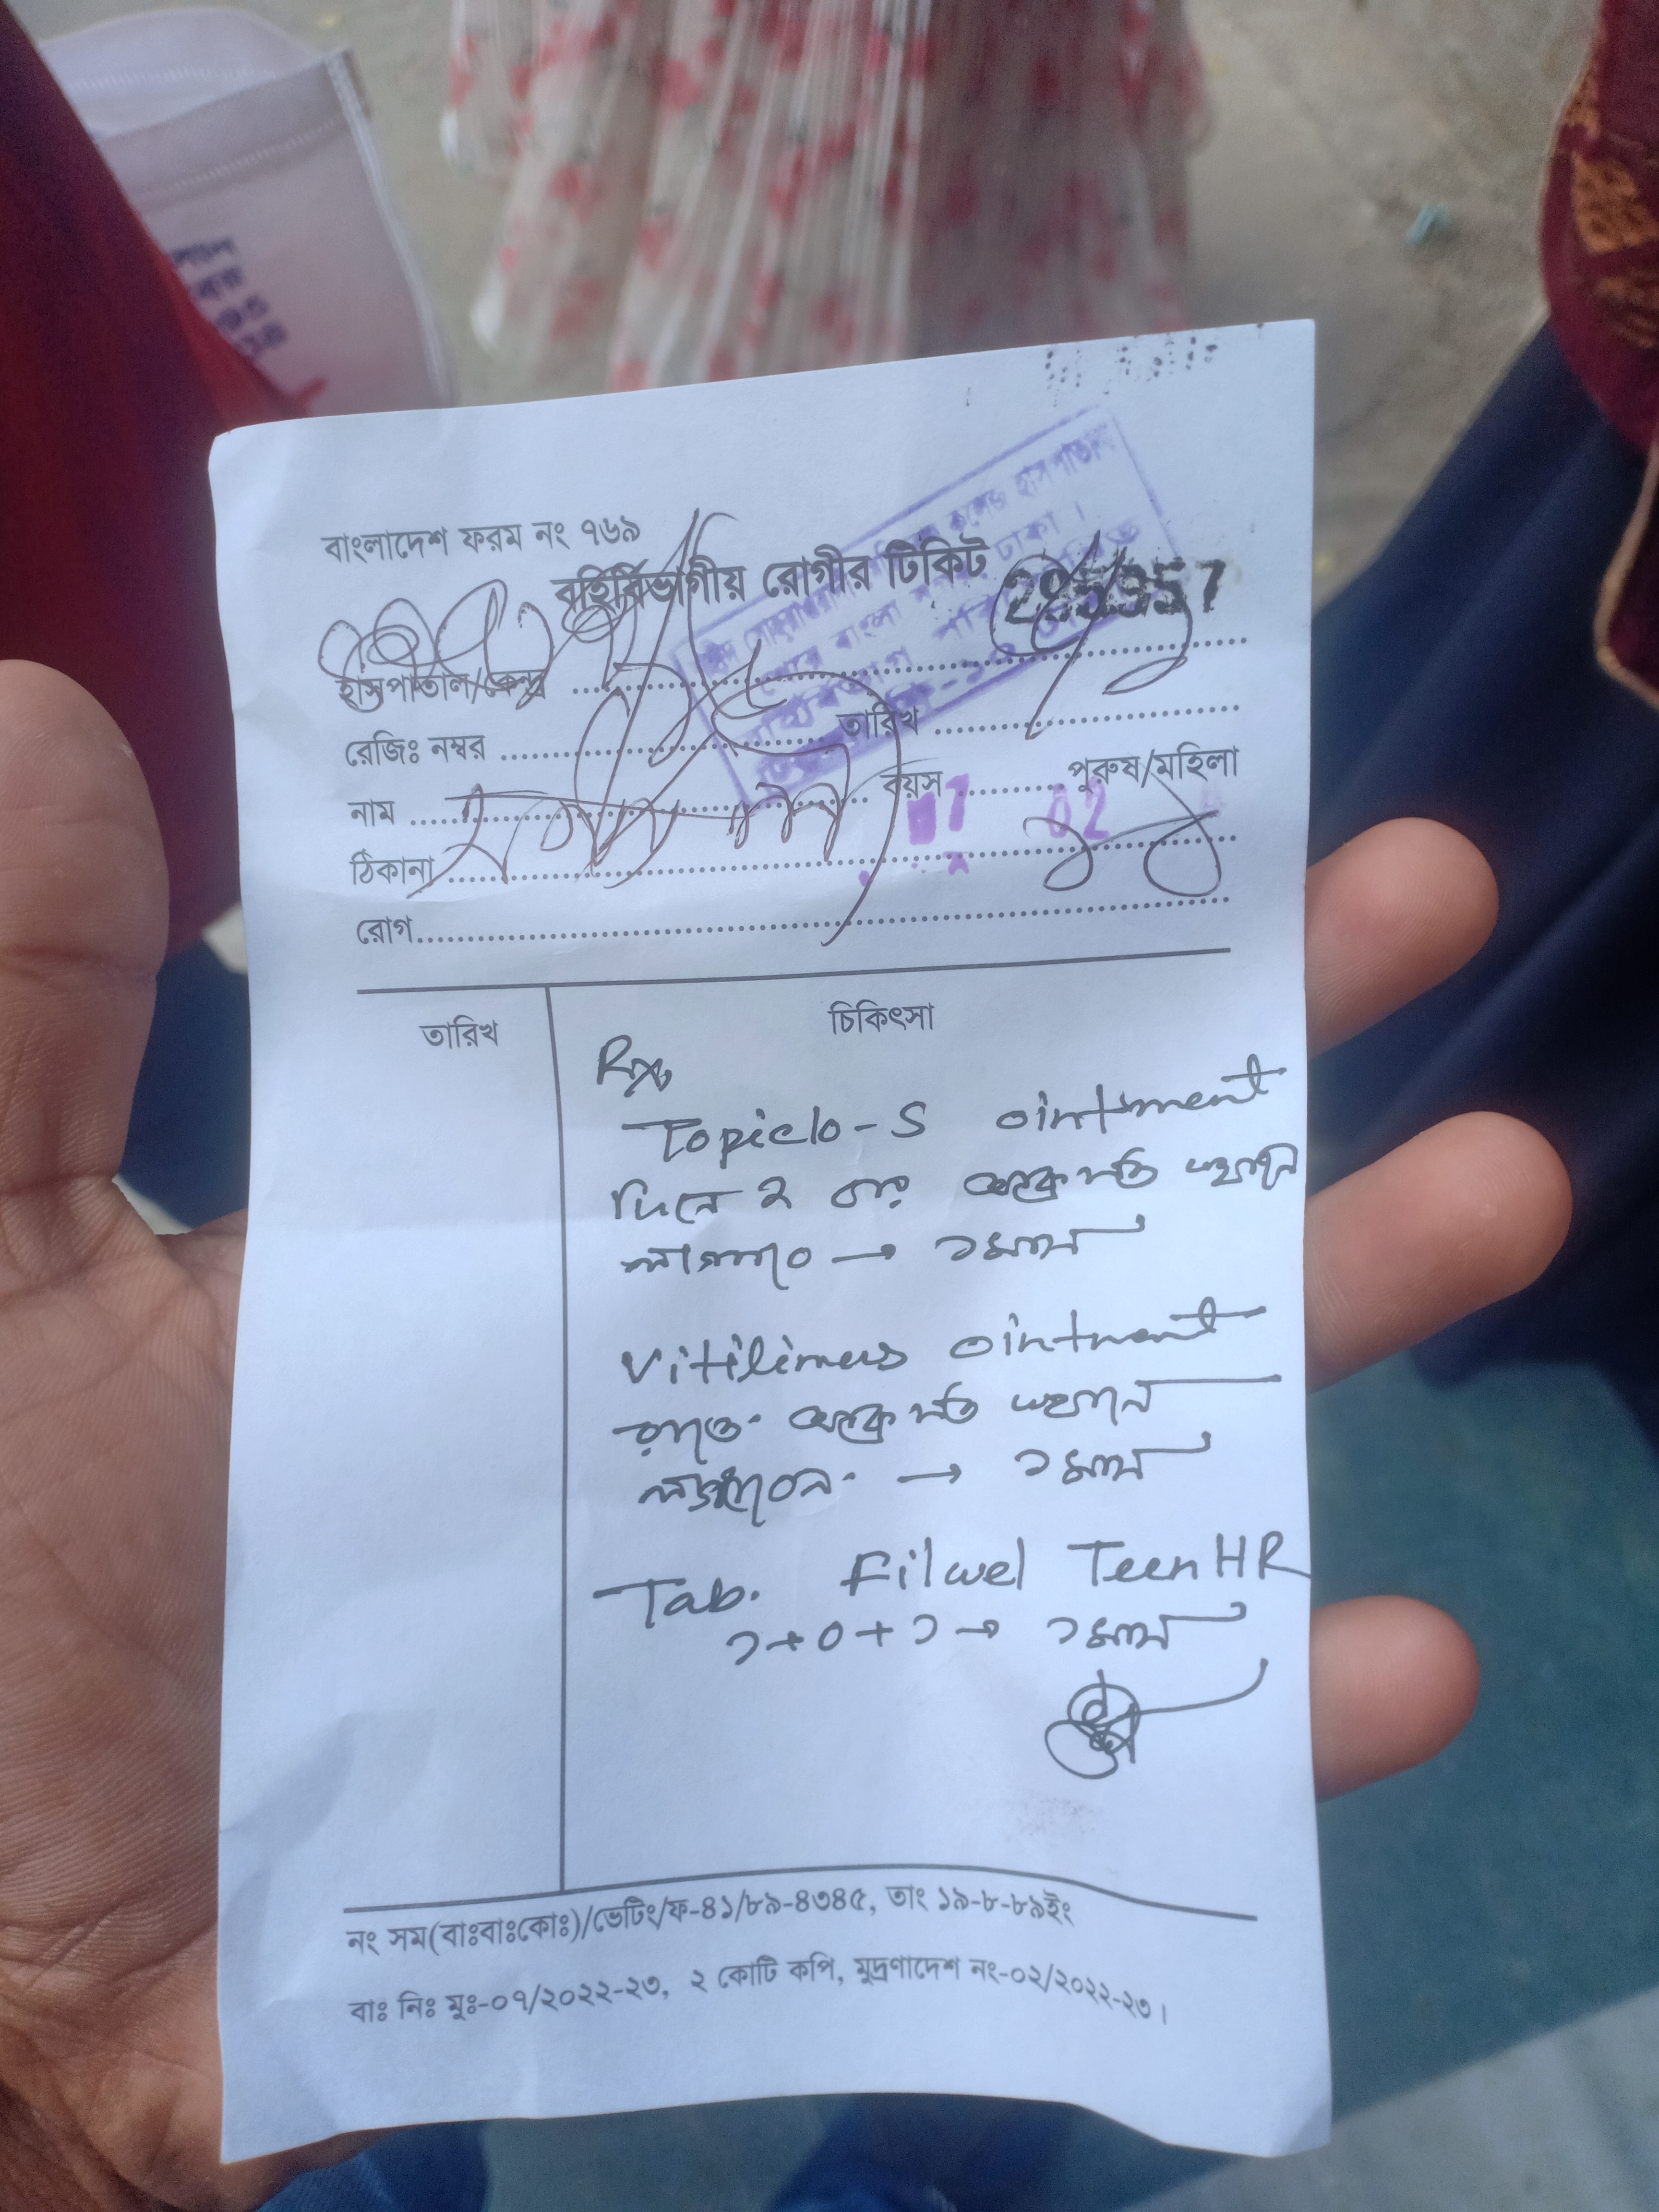 বাংলাদেশ ফরম নং ৭৬৯
বহির্বিভাগীয় রোগীর টিকিট
হাসপাতাল/কেন্দ্র
রেজিঃ নম্বর
তারিখ
নাম
বয়স
পুরুষ/মহিলা
02
ঠিকানা
রোগ
তারিখ
চিকিৎসা
Rx
Topiclo-S ointment
দিনে ২ বার আক্রান্ত স্থানে
লাগাবে → ১ মাস
Vitilimus ointment
রাতে আক্রান্ত স্থানে
লাগাবেন → ১ মাস
Tab. Filwel Teen HR
১+০+১ → ১ মাস
নং সম(বাঃবাঃকোঃ)/ভেটিং/ফ-৪১/৮৯-৪৩৪৫, তাং ১৯-৮-৮৯ইং
বাঃ নিঃ মুঃ-০৭/২০২২-২৩, ২ কোটি কপি, মুদ্রণাদেশ নং-০২/২০২২-২৩।